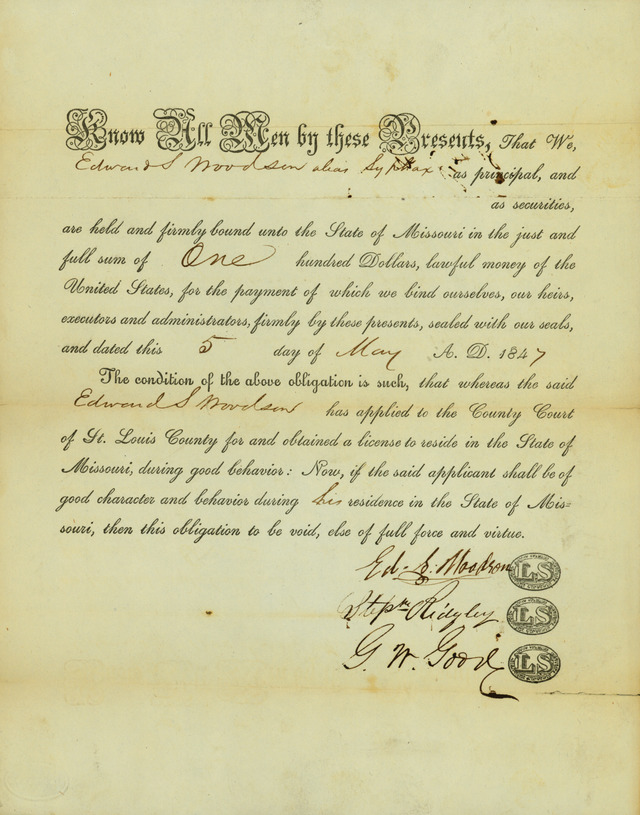 Know All Men by these Presents, That We,
Edward S Woodson alias Syphax as principal, and
as securities,
are held and firmly bound unto the State of Missouri in the just and
full sum of One hundred Dollars, lawful money of the
United States, for the payment of which we bind ourselves, our heirs,
executors and administrators, firmly by these presents, sealed with our seals,
and dated this 5 day of May A. D. 1847
The condition of the above obligation is such, that whereas the said
Edward S Woodson has applied to the County Court
of St. Louis County for and obtained a license to reside in the State of
Missouri, during good behavior: Now, if the said applicant shall be of
good character and behavior during his residence in the State of Mis=
souri, then this obligation to be void, else of full force and virtue.
Ed. S. Woodson LS
Stepn Ridgley LS
G. W. Good LS